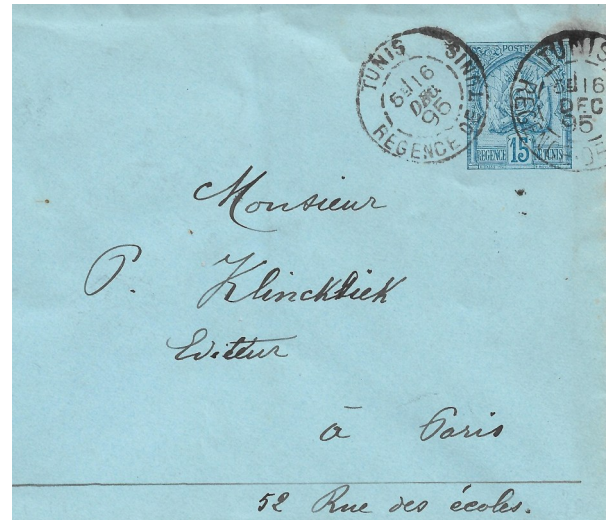 TUNIS
5E/16
DEC.
95
REGENCE DE TUNIS
POSTES
REGENCE 15 DE TUNIS
TUNIS
5E/16
DEC
95
Monsieur
P. Klincksiek
Editeur
à Paris
52 Rue des écoles.